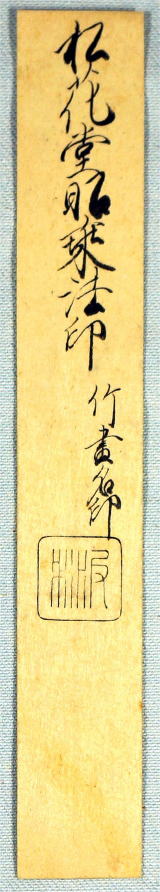 松花堂昭乗法印
竹畫名印